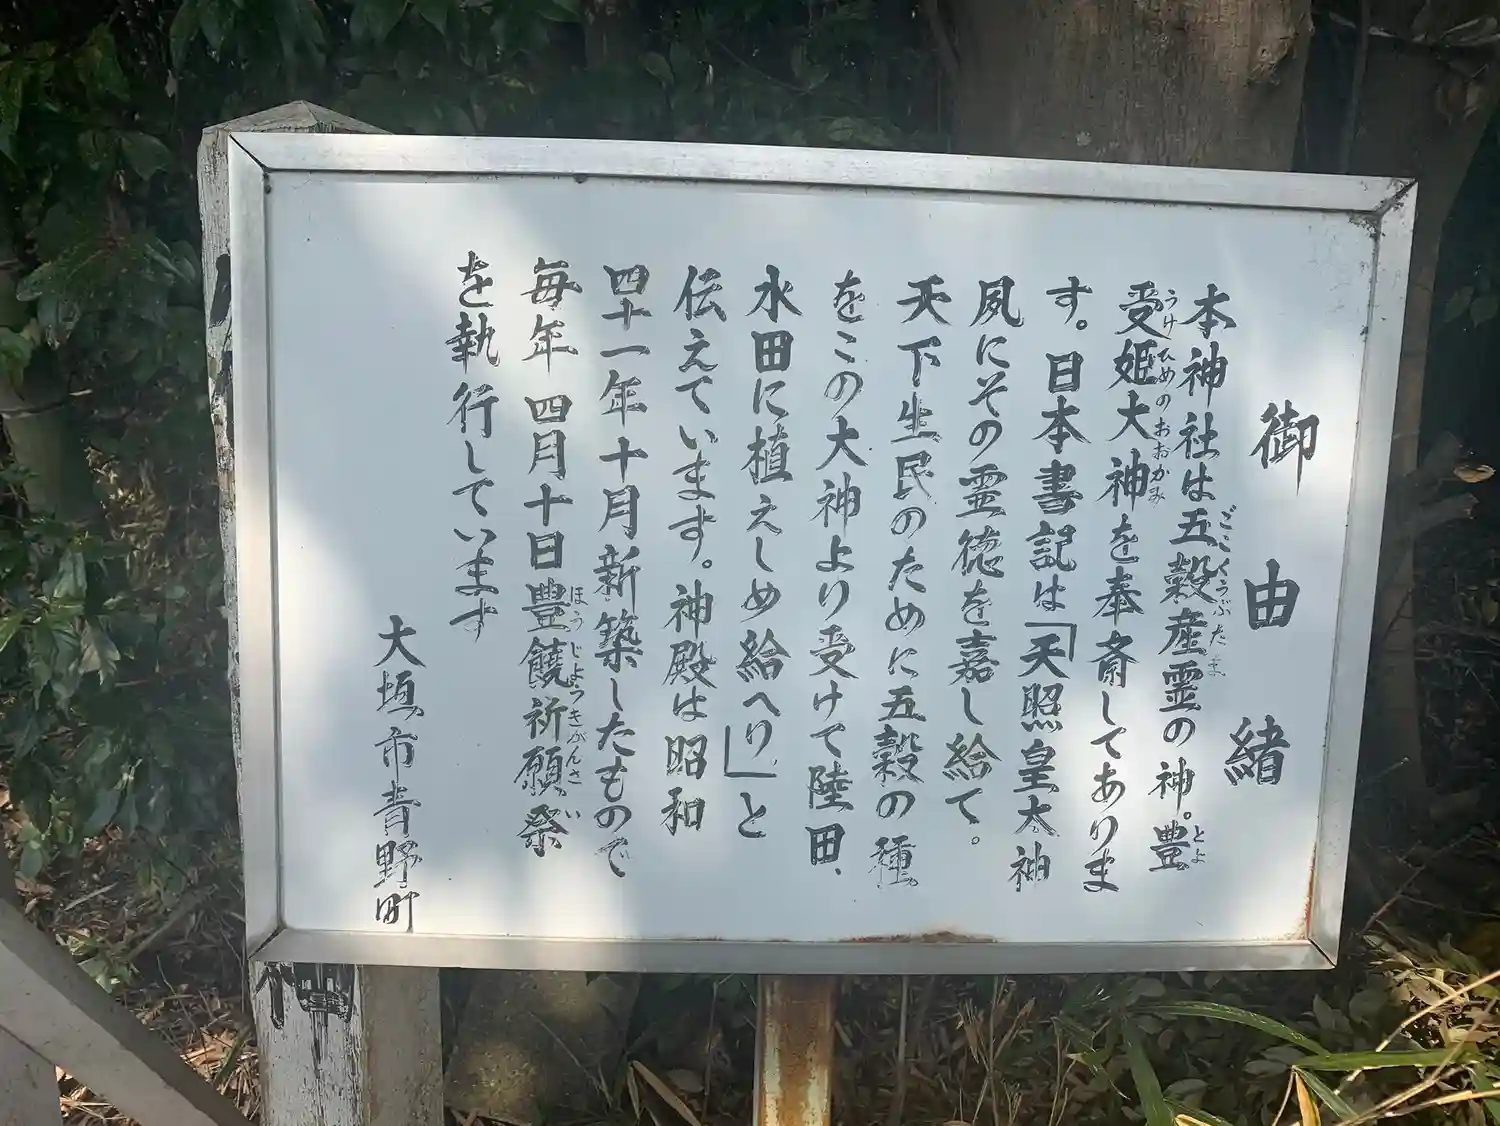 御由緒
本神社は五穀産霊の神。豊
受姫大神を奉斎してありま
す。日本書記は「天照皇大神
夙にその霊徳を嘉し給て。
天下生民のために五穀の種
をこの大神より受けて陸田、
水田に植えしめ給へり」と
伝えています。神殿は昭和
四十一年十月新築したもので
毎年 四月十日豊饒祈願祭
を執行しています
大垣市青野町
ごこくうぶたま
とよ
うけひめのおおかみ
ほうじょうきがんさい